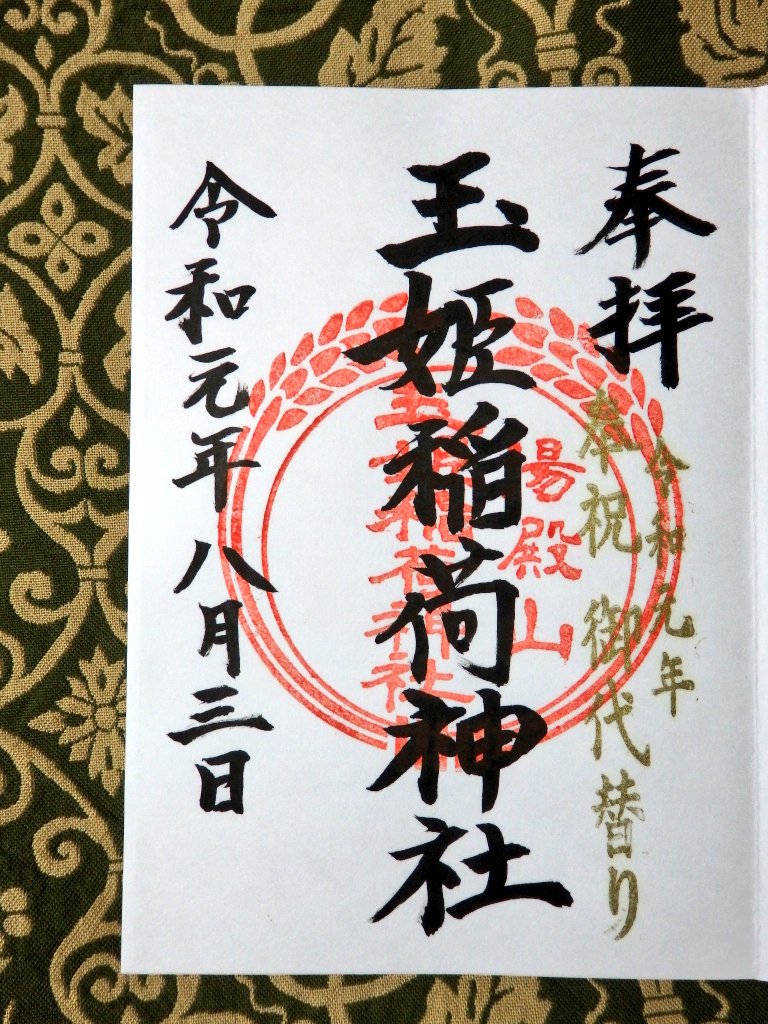 奉拝
令和元年
奉祝 御代替り
湯殿山
玉姫稲荷神社
玉姫稲荷神社
令和元年八月三日